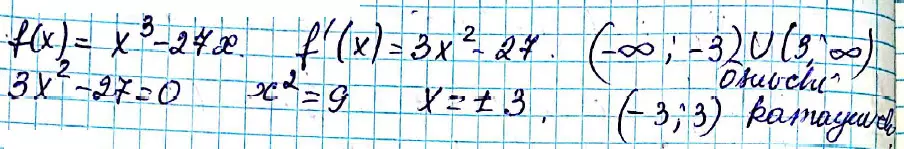 f(x) = x³ - 27x. f'(x) = 3x² - 27. (-∞; -3) U (3; ∞) o'suvchi
3x² - 27 = 0 x² = 9 x = ± 3. (-3; 3) kamayuvchi